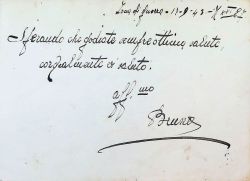 Zona di guerra - 13-8-43-
Sperando che godiate sempre ottima salute
cordialmente vi saluto.
aff.mo
Bruno